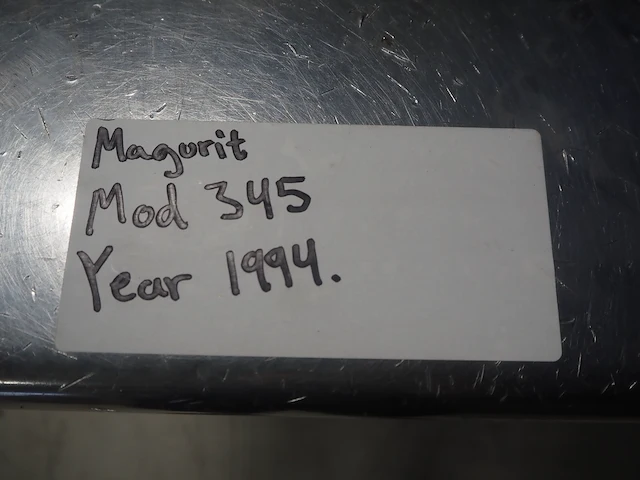 Magurit
Mod 345
Year 1994.